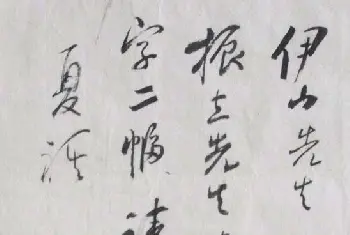 伊山先生
振立先生
字二幅
夏